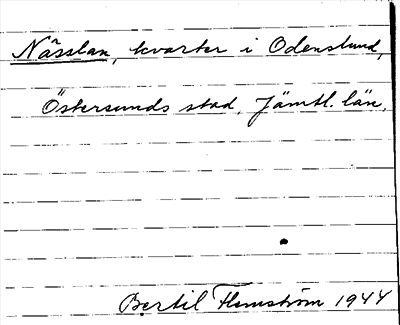 Nässlan, kvarter i Odenslund,
Östersunds stad, Jämtl. län.
Bertil Flemström 1944